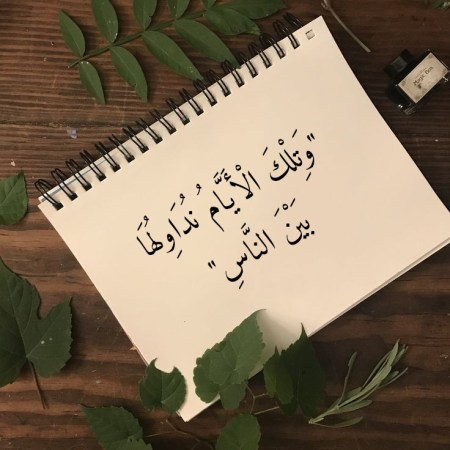 "وَتِلْكَ الْأَيَّام نُدُاوِلُهَا
بَيْنَ النَّاسِ"